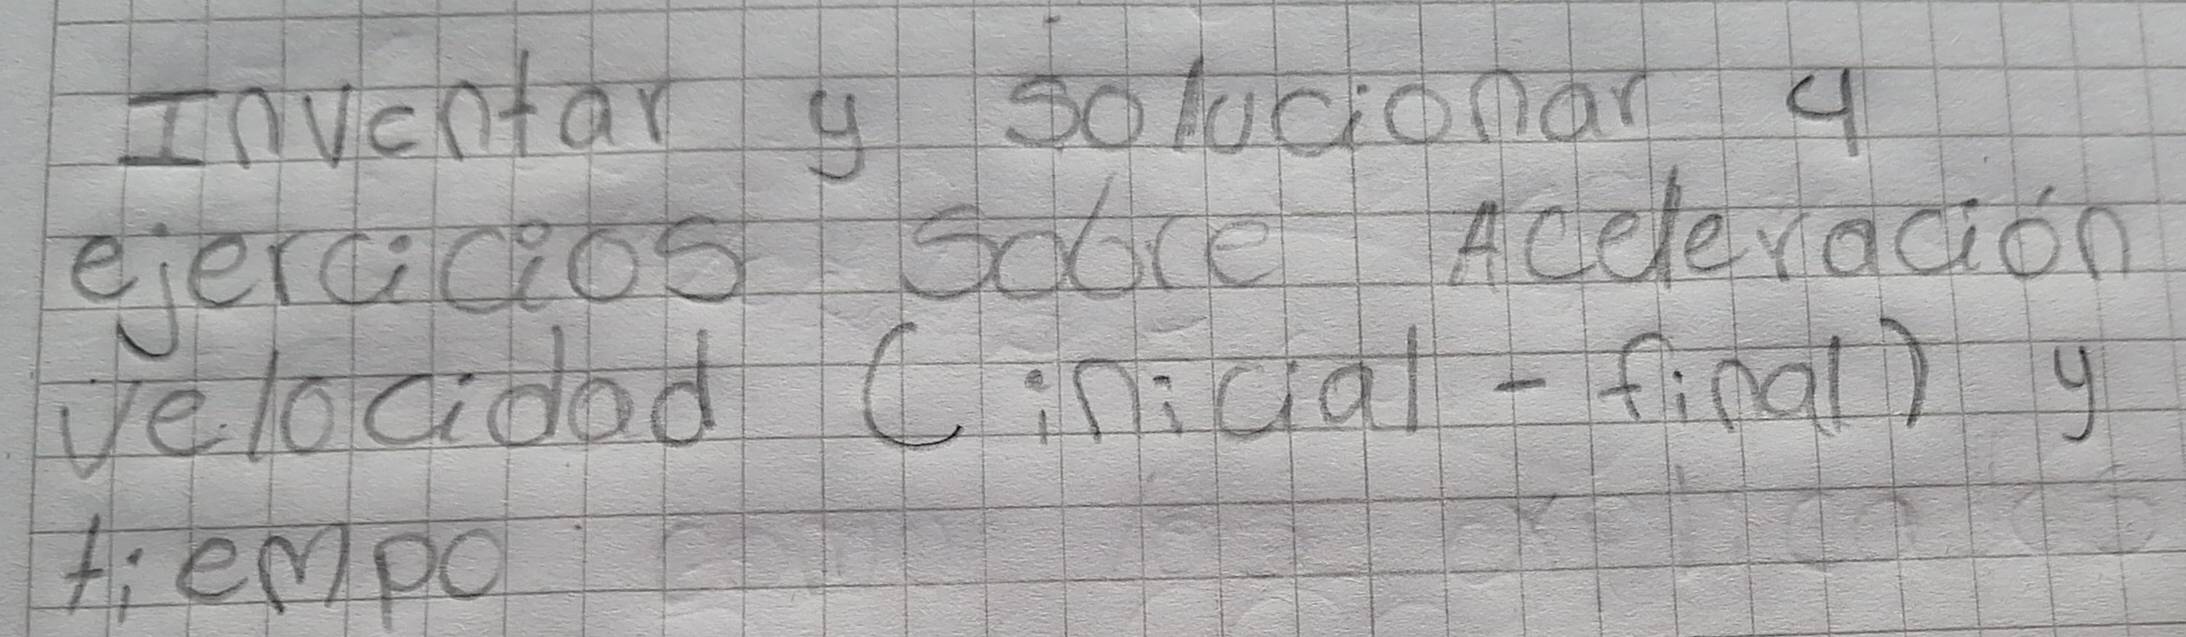 Inventar y solucionar 4
ejercicios sobre Aceleración
velocidad (inicial - final) y
tiempo